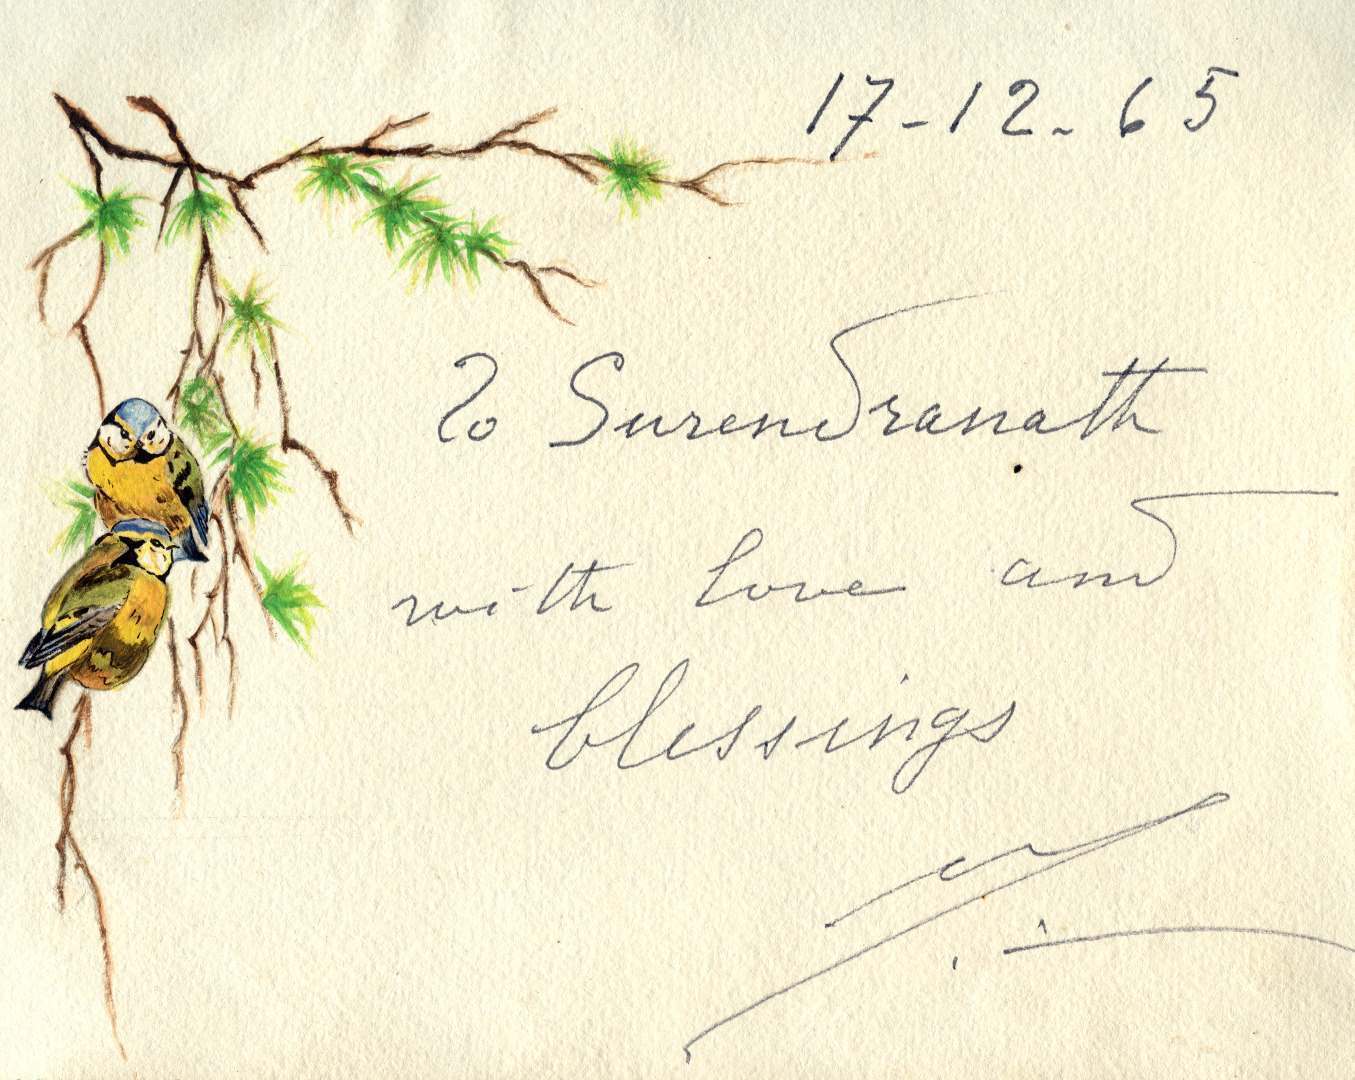 17-12-65
To Surendranath
with love and
blessings